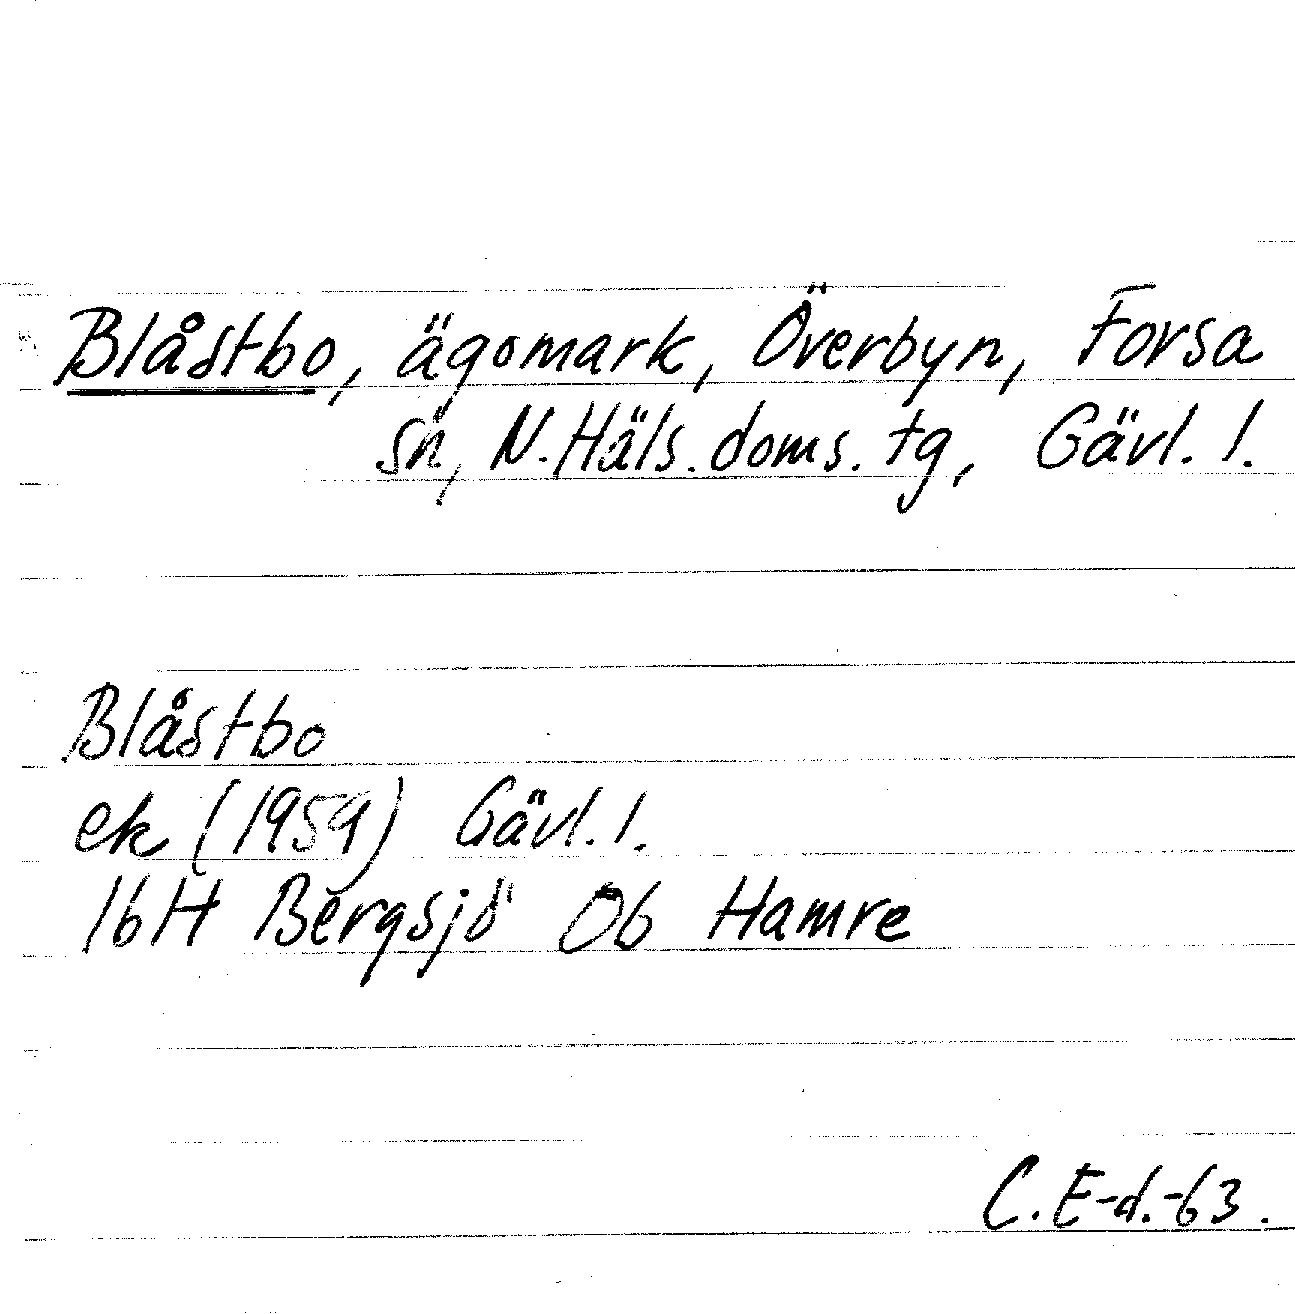 Blåstbo, ägomark, Överbyn, Forsa
sn, N. Häls. doms. tg, Gävl. l.
Blåstbo
ek (1959) Gävl. l.
16H Bergsjö Ob Hamre
C. E-d.-63.